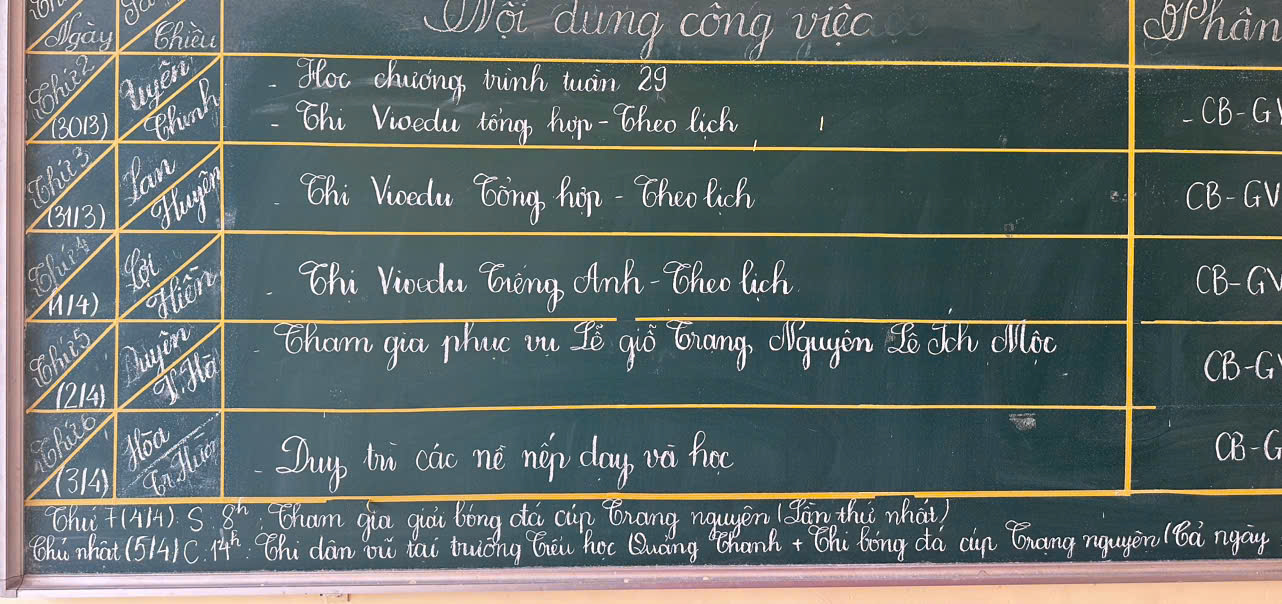 Ngày Chiều Nội dung công việc Phân
Thứ 2 (30/3) Uyên Chinh - Học chương trình tuần 29
- Thi Vioedu tổng hợp - Theo lịch - CB-GV
Thứ 3 (31/3) Lan Huyên - Thi Vioedu Tổng hợp - Theo lịch CB-GV
Thứ 4 (1/4) Lợi Hiên - Thi Vioedu Tiếng Anh - Theo lịch CB-GV
Thứ 5 (2/4) Duyên - Tham gia phục vụ Lễ giỗ Trạng Nguyên Lê Ích Mộc CB-G
Thứ 6 (3/4) Hòa - Duy trì các nề nếp dạy và học CB-G
Thứ 7 (4/4): S 8h: Tham gia giải bóng đá cúp Trạng nguyên (Lần thứ nhất)
Chủ nhật (5/4) C. 14h: Thi dân vũ tại trường Tiểu học Quảng Thanh + Thi bóng đá cúp Trạng nguyên (Cả ngày